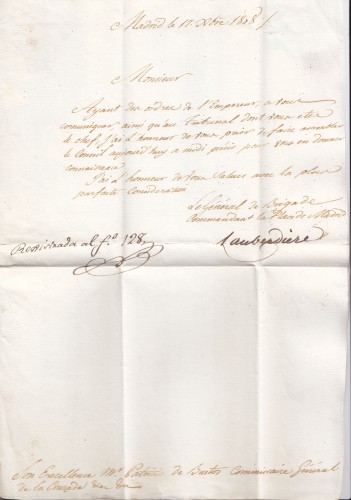 Madrid le 17. Xbre 1808
Monsieur
Ayant des ordres de l'Empereur, a vous
comuniquer, ainsi qu'au Tribunal dont vous etes
le chef, J'ai l'honneur de vous prier de faire assembler
le Conseil aujourd'huy a midi précis pour vous en donner
connaissance
J'ai l'honneur de vous saluer avec la plus
parfaite consideration
Le Général de Brigade
Commandant la Place de Madrid
Laubardiere
Rexistrada al fº 128,
Son Excellence Mr de Bustos Commissaire Général
de la Cruzada